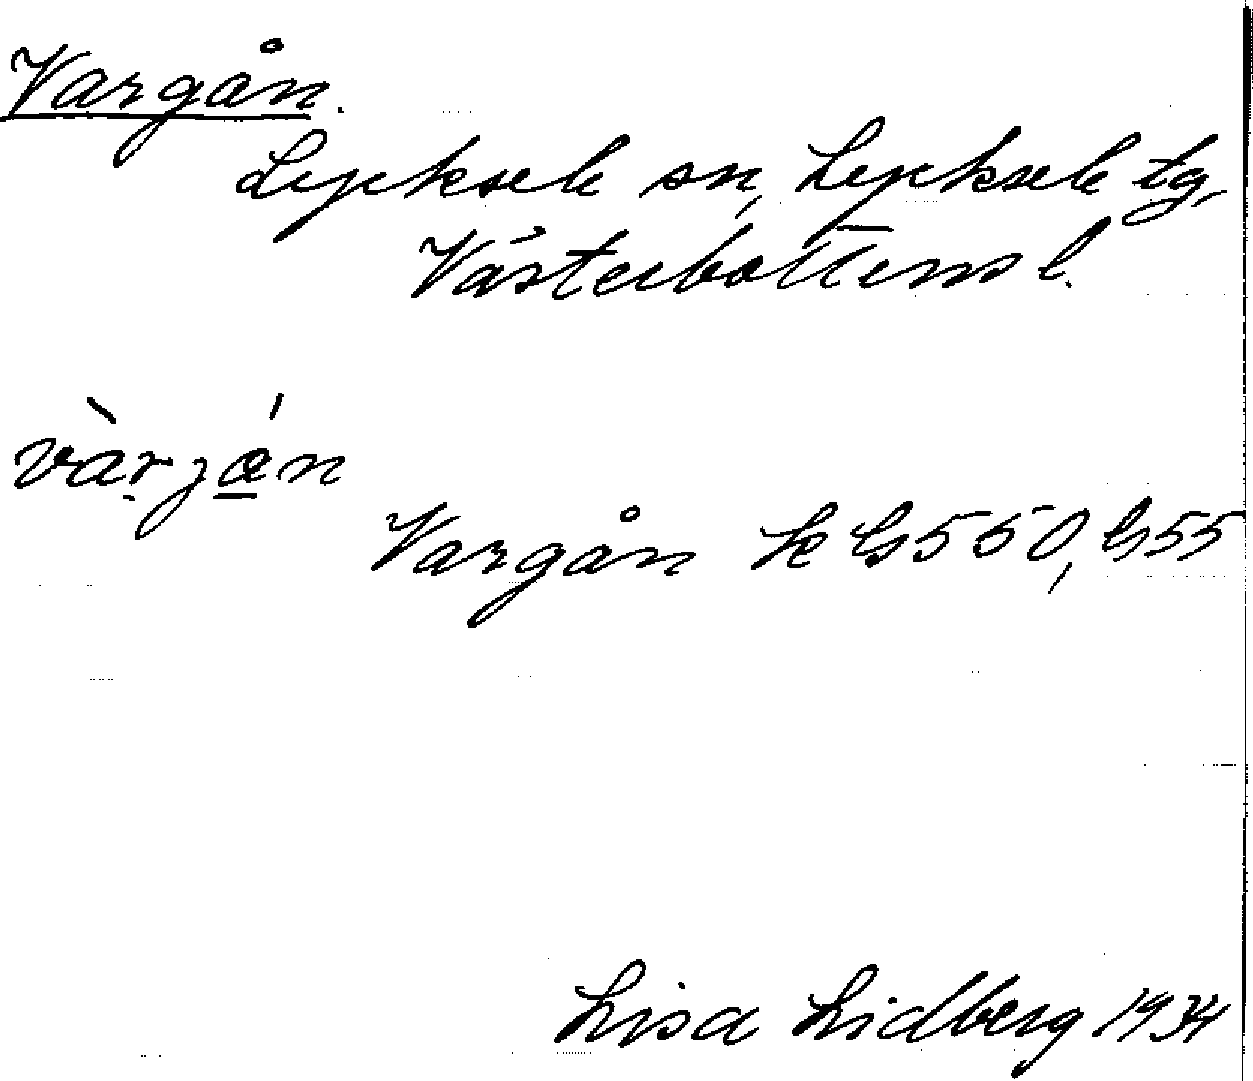 Vargån.
Lycksele sn, Lycksele tg,
Västerbottens l.
vàrjá̱n
Vargån k Gs 550, Gs 55
Lisa Lidberg 1934